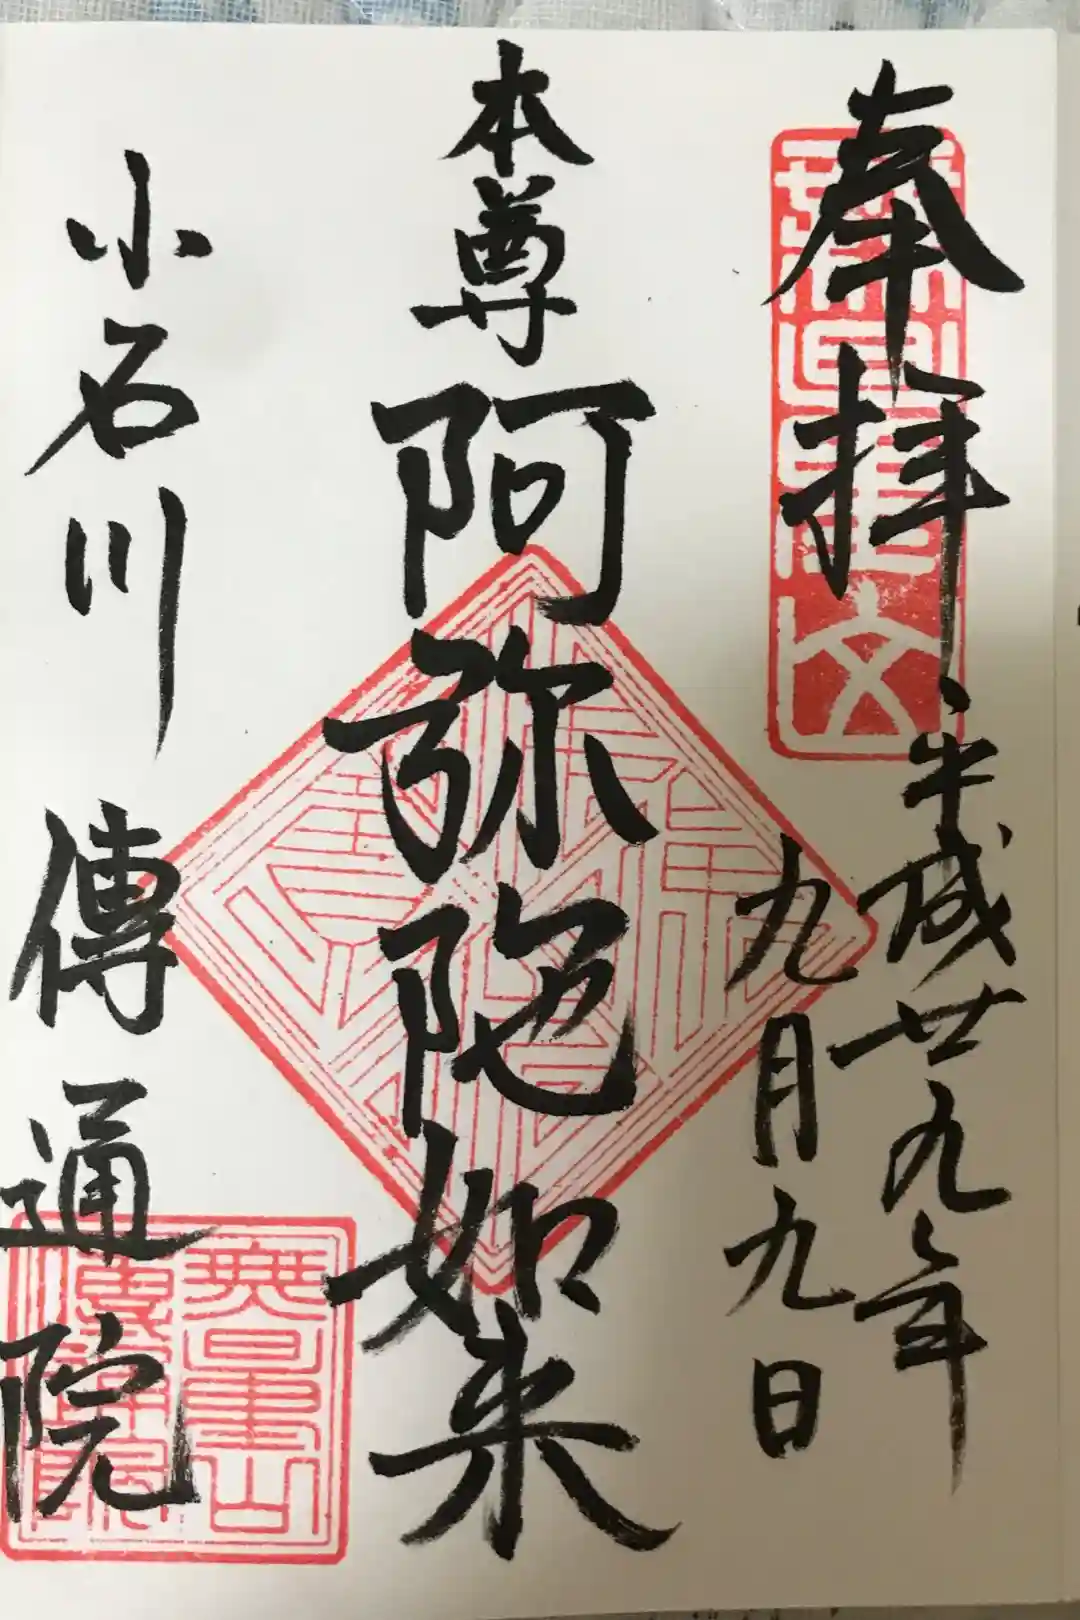 奉拝
平成廿九年
九月九日
本尊 阿弥陀如来
小石川 傳通院
無量山
傳通院